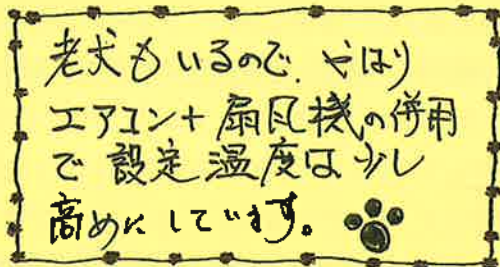 老犬もいるので、やはり
エアコン+扇風機の併用
で設定温度は少し
高めにしています。